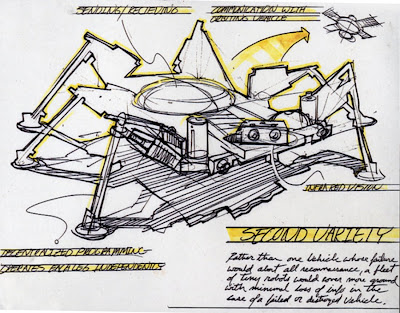 SENDING/RECIEVING
COMMUNICATION WITH
ORBITING VEHICLE
INFRARED VISION
DECENTRALIZED PROGRAMMING
SECOND VARIETY
Rather than one vehicle whose failure
would abort all reconnaissance, a fleet
of tiny robots would cover more ground
with minimal loss of info in the
case of a failed or destroyed vehicle.